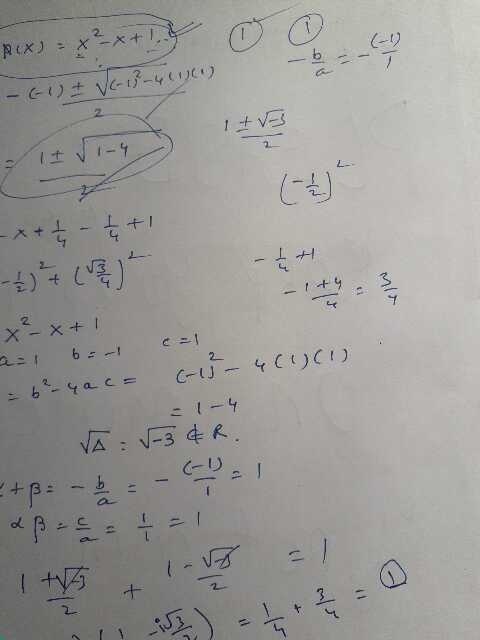 p(x) = x² - x + 1 ① ①
-b/a = -(-1)/1
-(-1) ± √(-1)² - 4(1)(1) / 2
1 ± √-3 / 2
= 1 ± √1-4 / 2
(-1/2)²
-x + 1/4 - 1/4 + 1
-1/4 + 1
-1/2)² + (√3/4)²
-1+4/4 = 3/4
x² - x + 1
a=1 b=-1 c=1
= b² - 4ac = (-1)² - 4(1)(1)
= 1 - 4
√Δ = √-3 ∉ R.
+ β = -b/a = -(-1)/1 = 1
αβ = c/a = 1/1 = 1
1 + √-3/2 + 1 - √-3/2 = 1
-i√3/2) = 1/4 + 3/4 = ①